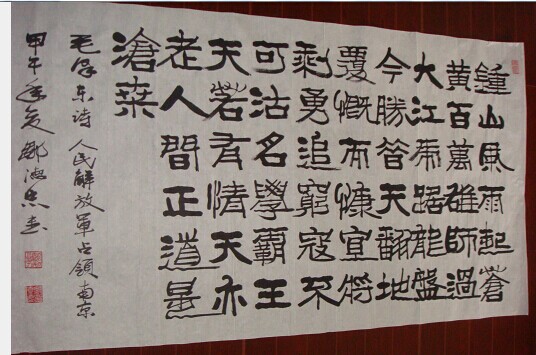 鍾山風雨起蒼
黄百萬雄師過
大江虎踞龍盤
今勝昔天翻地
覆慨而慷宜將
剩勇追窮寇不
可沽名學霸王
天若有情天亦
老人間正道是
滄桑
毛泽东诗人民解放軍占領南京
甲午年夏